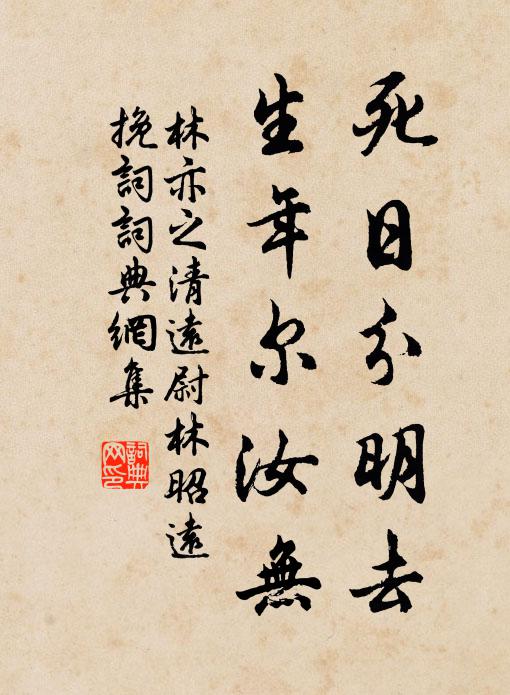 死日分明去
生年尔汝無
林亦之清遠尉林昭遠
挽詞詞典網集
詞典
网印